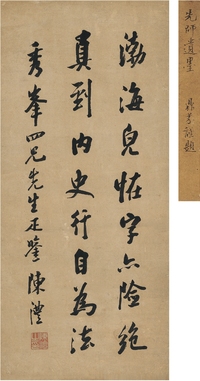 渤海兒怪字亦險絕
真到內史行自為法
秀峯四兄先生正鑒 陳澧
先師遺墨